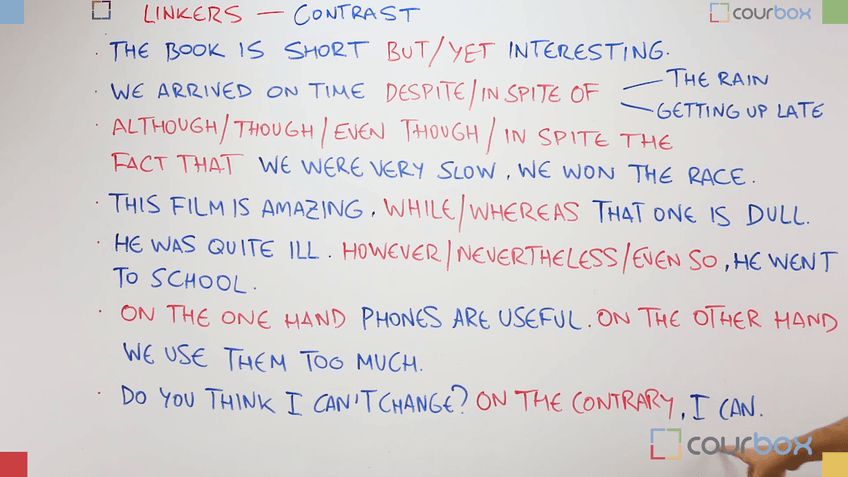 LINKERS — CONTRAST
courbox
· THE BOOK IS SHORT BUT/YET INTERESTING.
· WE ARRIVED ON TIME DESPITE/IN SPITE OF
THE RAIN
GETTING UP LATE
· ALTHOUGH/THOUGH/EVEN THOUGH/IN SPITE THE
FACT THAT WE WERE VERY SLOW, WE WON THE RACE.
· THIS FILM IS AMAZING, WHILE/WHEREAS THAT ONE IS DULL.
· HE WAS QUITE ILL. HOWEVER/NEVERTHELESS/EVEN SO, HE WENT
TO SCHOOL.
· ON THE ONE HAND PHONES ARE USEFUL. ON THE OTHER HAND
WE USE THEM TOO MUCH.
· DO YOU THINK I CAN'T CHANGE? ON THE CONTRARY, I CAN.
courbox